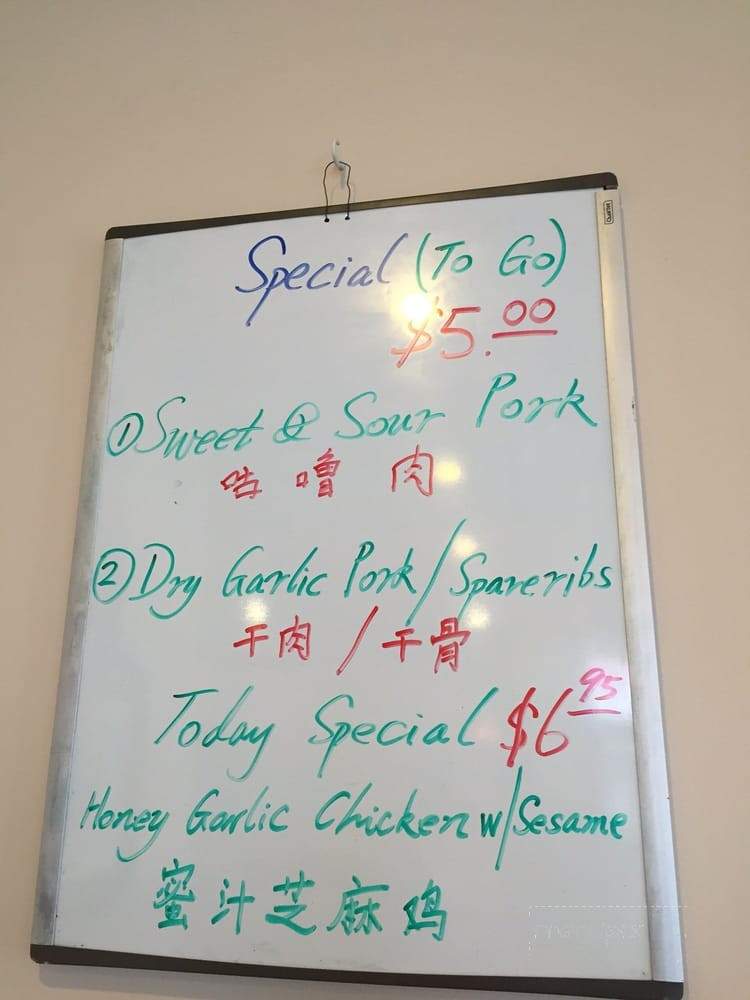 Special (To Go)
$5.00
①Sweet & Sour Pork
咕噜肉
②Dry Garlic Pork/Spareribs
干肉/干骨
Today Special $6 95
Honey Garlic Chicken w/Sesame
蜜汁芝麻鸡